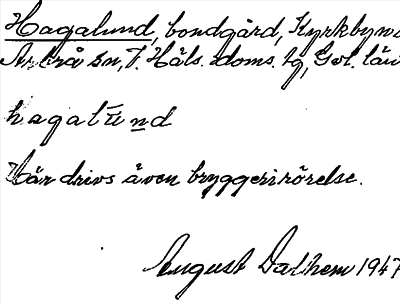 Hagalund, bondgård, Kyrkbyn
Arbrå sn, V. Häls. doms. tg, Gvl. län
hagalūnd
Här drivs även bryggerirörelse.
August Dalhem 1947